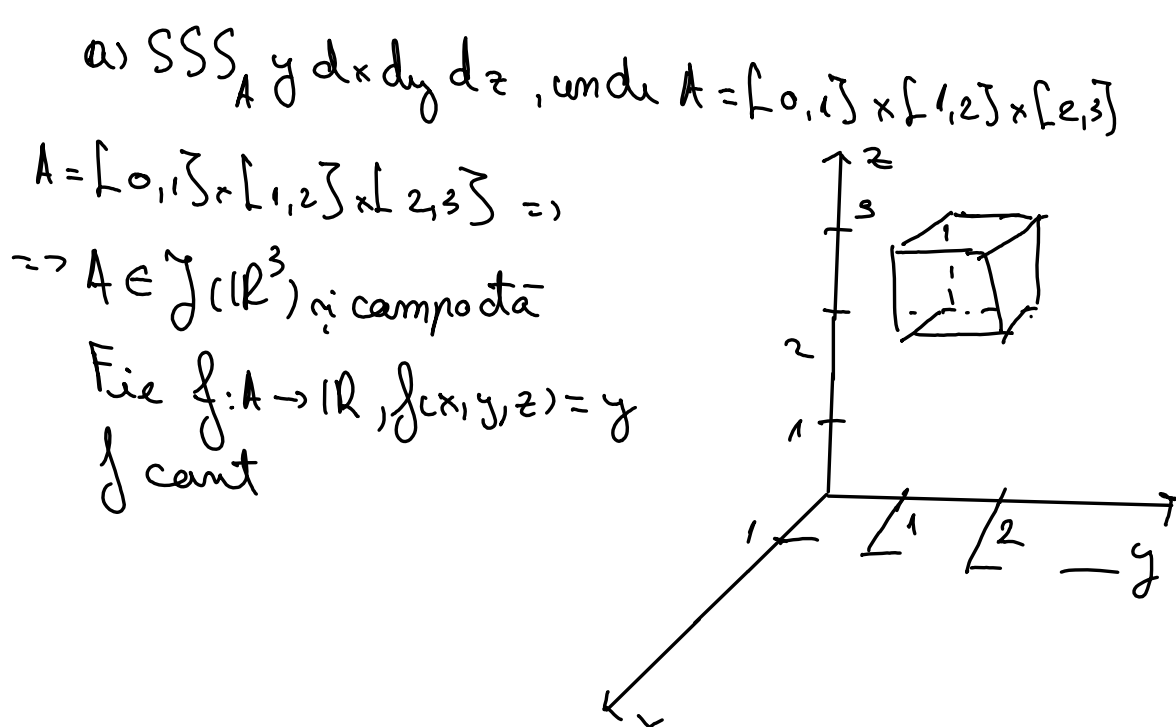 a) SSS_A y dx dy dz, unde A = [0,1] x [1,2] x [2,3]
A = [0,1] x [1,2] x [2,3] =>
=> A ∈ J(ℝ³) și compactă
Fie f: A → ℝ, f(x,y,z) = y
f cont
z
3
2
1
1
1 2
y
x